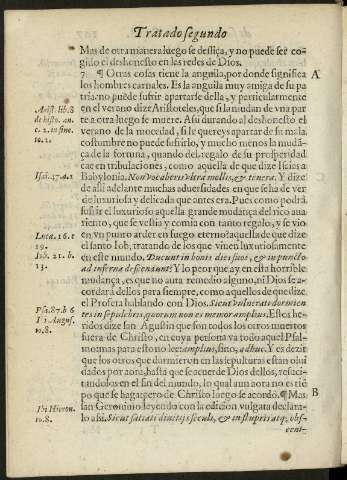 Tratado segundo
Mas de otra manera luego se desliça, y no puede ser co-
gido el deshonesto en las redes de Dios.
7 ¶ Otras cosas tiene la anguila, por donde significa A
los hombres carnales. Es la anguila muy amiga de su pa
tria: no puede sufrir apartarse della, y particularmente
Arist. lib. 8 en el verano dize Aristoteles, que si la mudan de vna par
de histo. an. te a otra luego se muere. Assi durando al deshonesto el
c. 2. in fine. verano de la mocedad, si le quereys apartar de su mala
to. 1. costumbre no puede sufrirlo, y mucho menos la mudã-
ça de la fortuna, quando del regalo de su prosperidad
cae en tribulaciones, como aquella de que dize Isaias a
Isai. 47. a. 1 Babylonia. Non vocaberis vltra mollis, & tenera. Y dize
de allí adelante muchas aduersidades en que se ha de ver
la luxuriosa y delicada que antes era. Pues como podrá
sufrir el luxurioso aquella grande mudança del rico aua
riento, que se vestia y comia con tanto regalo, y se vio
Luca. 16. e en vn punto arder en fuego eterno? aquella de que dize
19. el santo Iob, tratando de los que viuen luxuriosamente
Iob. 21. b. en este mundo. Ducunt in bonis dies suos, & in puncto
13. ad inferna descendunt? Y lo peor que ay en esta horrible
mudança, es que no aura remedio alguno, ni Dios se a-
cordará dellos para siempre, como aquellos de que dize
Psa. 87. b. 6 el Profeta hablando con Dios. Sicut vulnerati dormien
Vbi Augus. tes in sepulchris, quorum non es memor amplius. Estos he-
to. 8. ridos dize san Agustin que son todos los otros muertos
fuera de Christo, en cuya persona va todo aquel Psal-
mo: mas para esto no lee amplius, sino, adhuc. Y es dezir
que los otros que durmieron en las sepulturas estan olui
dados por aora, hasta que se acuerde Dios dellos, resuci-
tandolos en el fin del mundo, lo qual aun aora no es tiẽ
po que se haga: pero de Christo luego se acordó. ¶ Mas B
Vbi Hieron. san Geronimo leyendo con la edicion vulgata declarã-
to. 8. lo assi. Sicut satiati diuitijs seculi, & in stupris atq. obs-
ceni-